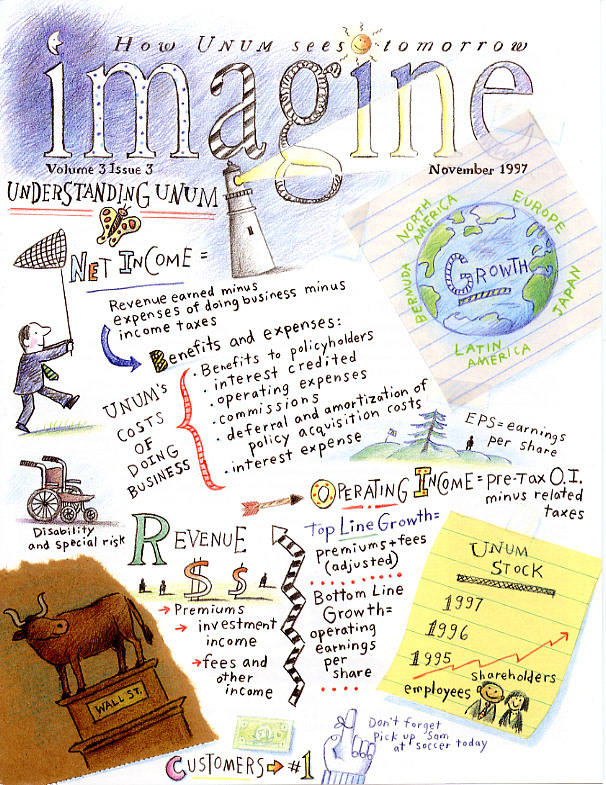 How UNUM sees tomorrow
imagine
Volume 3 Issue 3
November 1997
UNDERSTANDING UNUM
NET INCOME =
Revenue earned minus
expenses of doing business minus
income taxes
Benefits and expenses:
UNUM'S
COSTS
OF
DOING
BUSINESS
· Benefits to policyholders
· interest credited
· operating expenses
· commissions
· deferral and amortization of
policy acquisition costs
· interest expense
NORTH
AMERICA
EUROPE
BERMUDA
GROWTH
JAPAN
LATIN
AMERICA
EPS = earnings
per share
OPERATING INCOME = pre-Tax O.I.
minus related
taxes
Disability
and special risk
REVENUE
$ $
→ Premiums
→ investment
income
→ fees and
other
income
Top Line Growth =
premiums + fees
(adjusted)
Bottom Line
Growth =
operating
earnings
per
share
UNUM
STOCK
1997
1996
1995
shareholders
employees
WALL ST.
Don't forget
pick up Sam
at soccer today
CUSTOMERS → #1